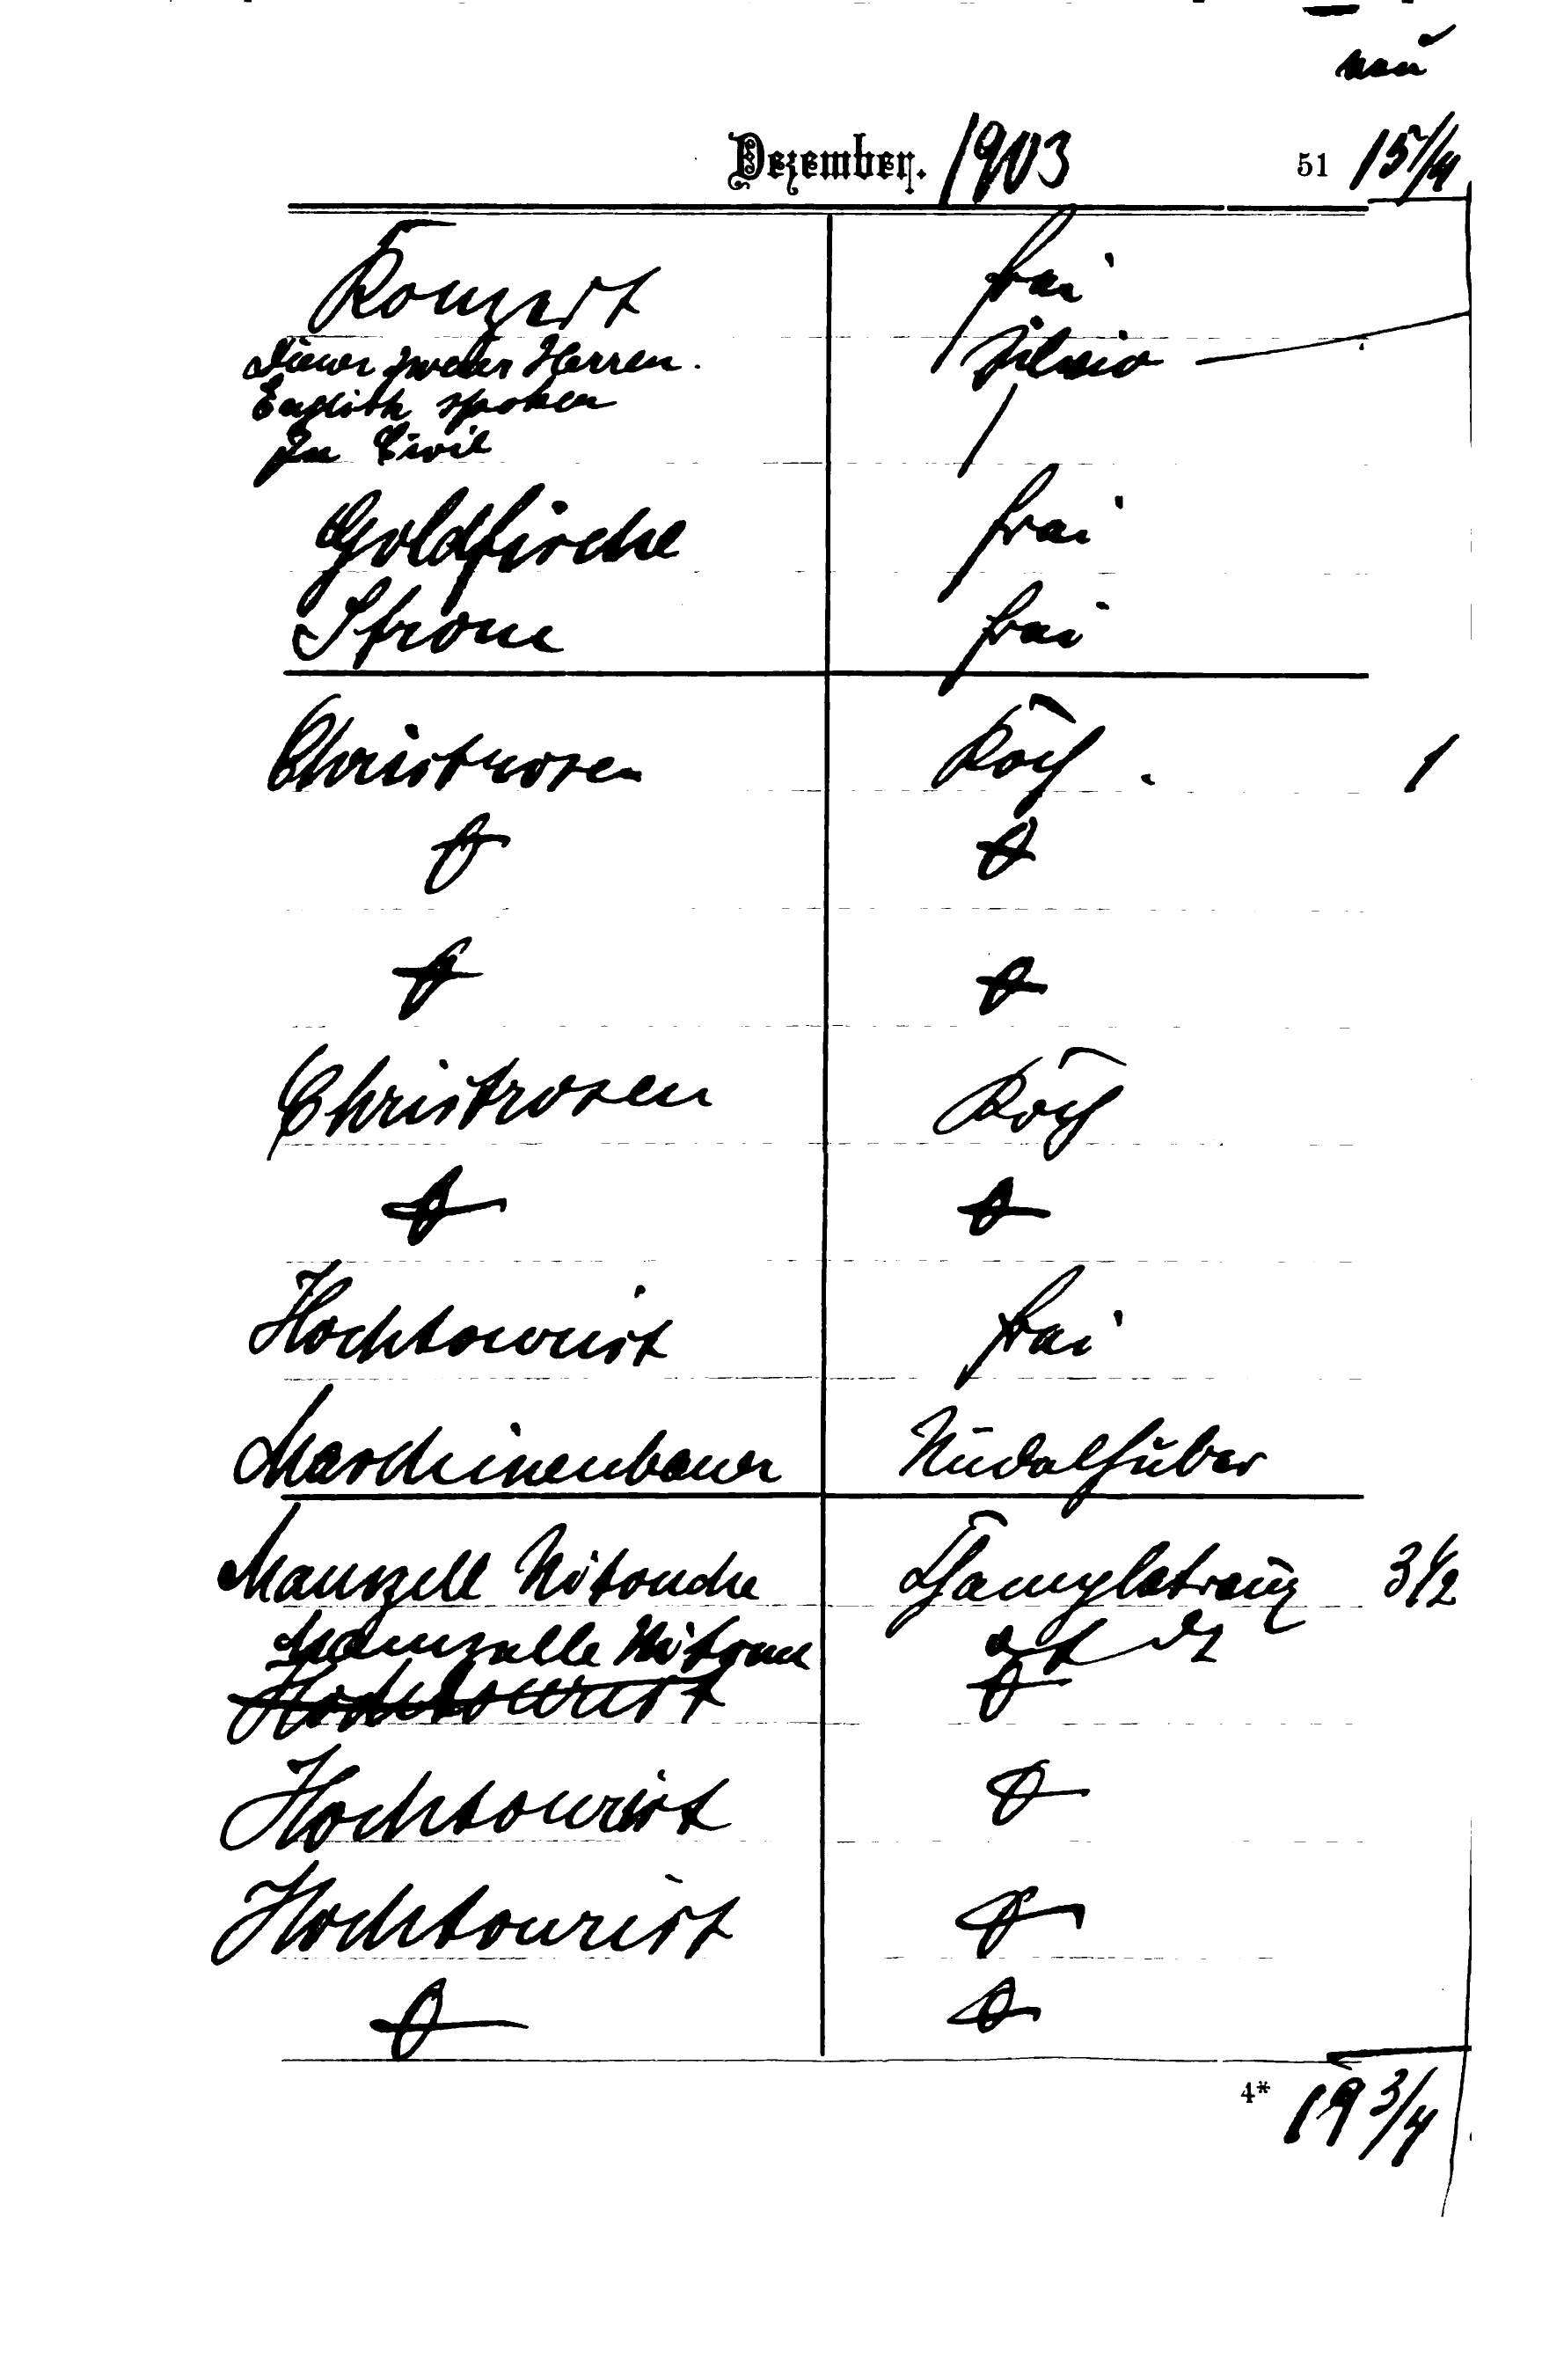 neu
Dezember. 1903 51 15 1/4
Konzert frei
Diener zweier Herren. Silvio
English spoken
In Civil
Goldfische frei
Strom frei
Christrosen Koch. 1
Christrosen Koch
Hochtourist frei
Maschinenbauer Nudlhuber
Mamzell Nitouche 3 1/2
Mamzelle Nitouche
Hochtourist
Hochtourist
Hochtourist
4* 19 3/4